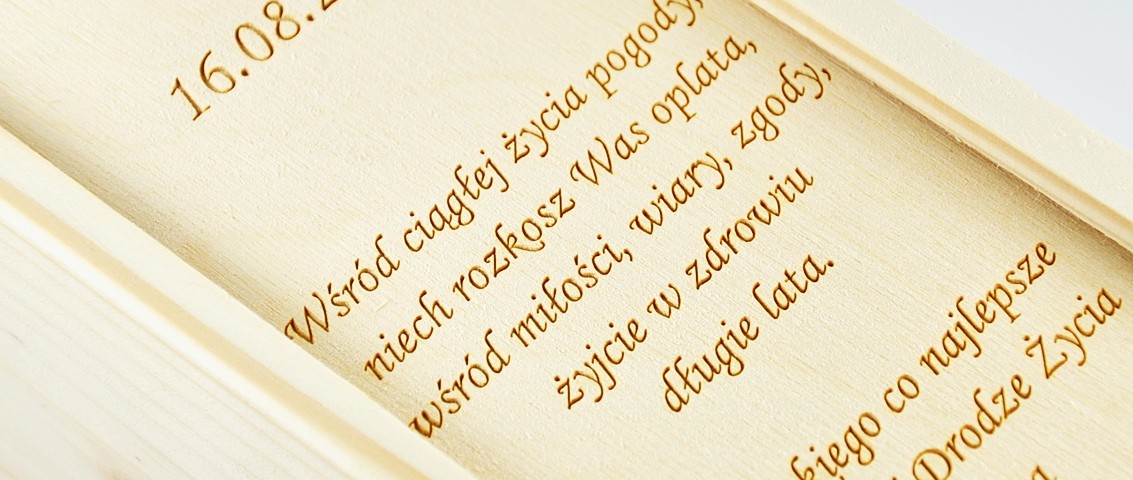 16.08.
Wśród ciągłej życia pogody,
niech rozkosz Was oplata,
wśród miłości, wiary, zgody,
żyjcie w zdrowiu
długie lata.
co najlepsze
Drodze Życia